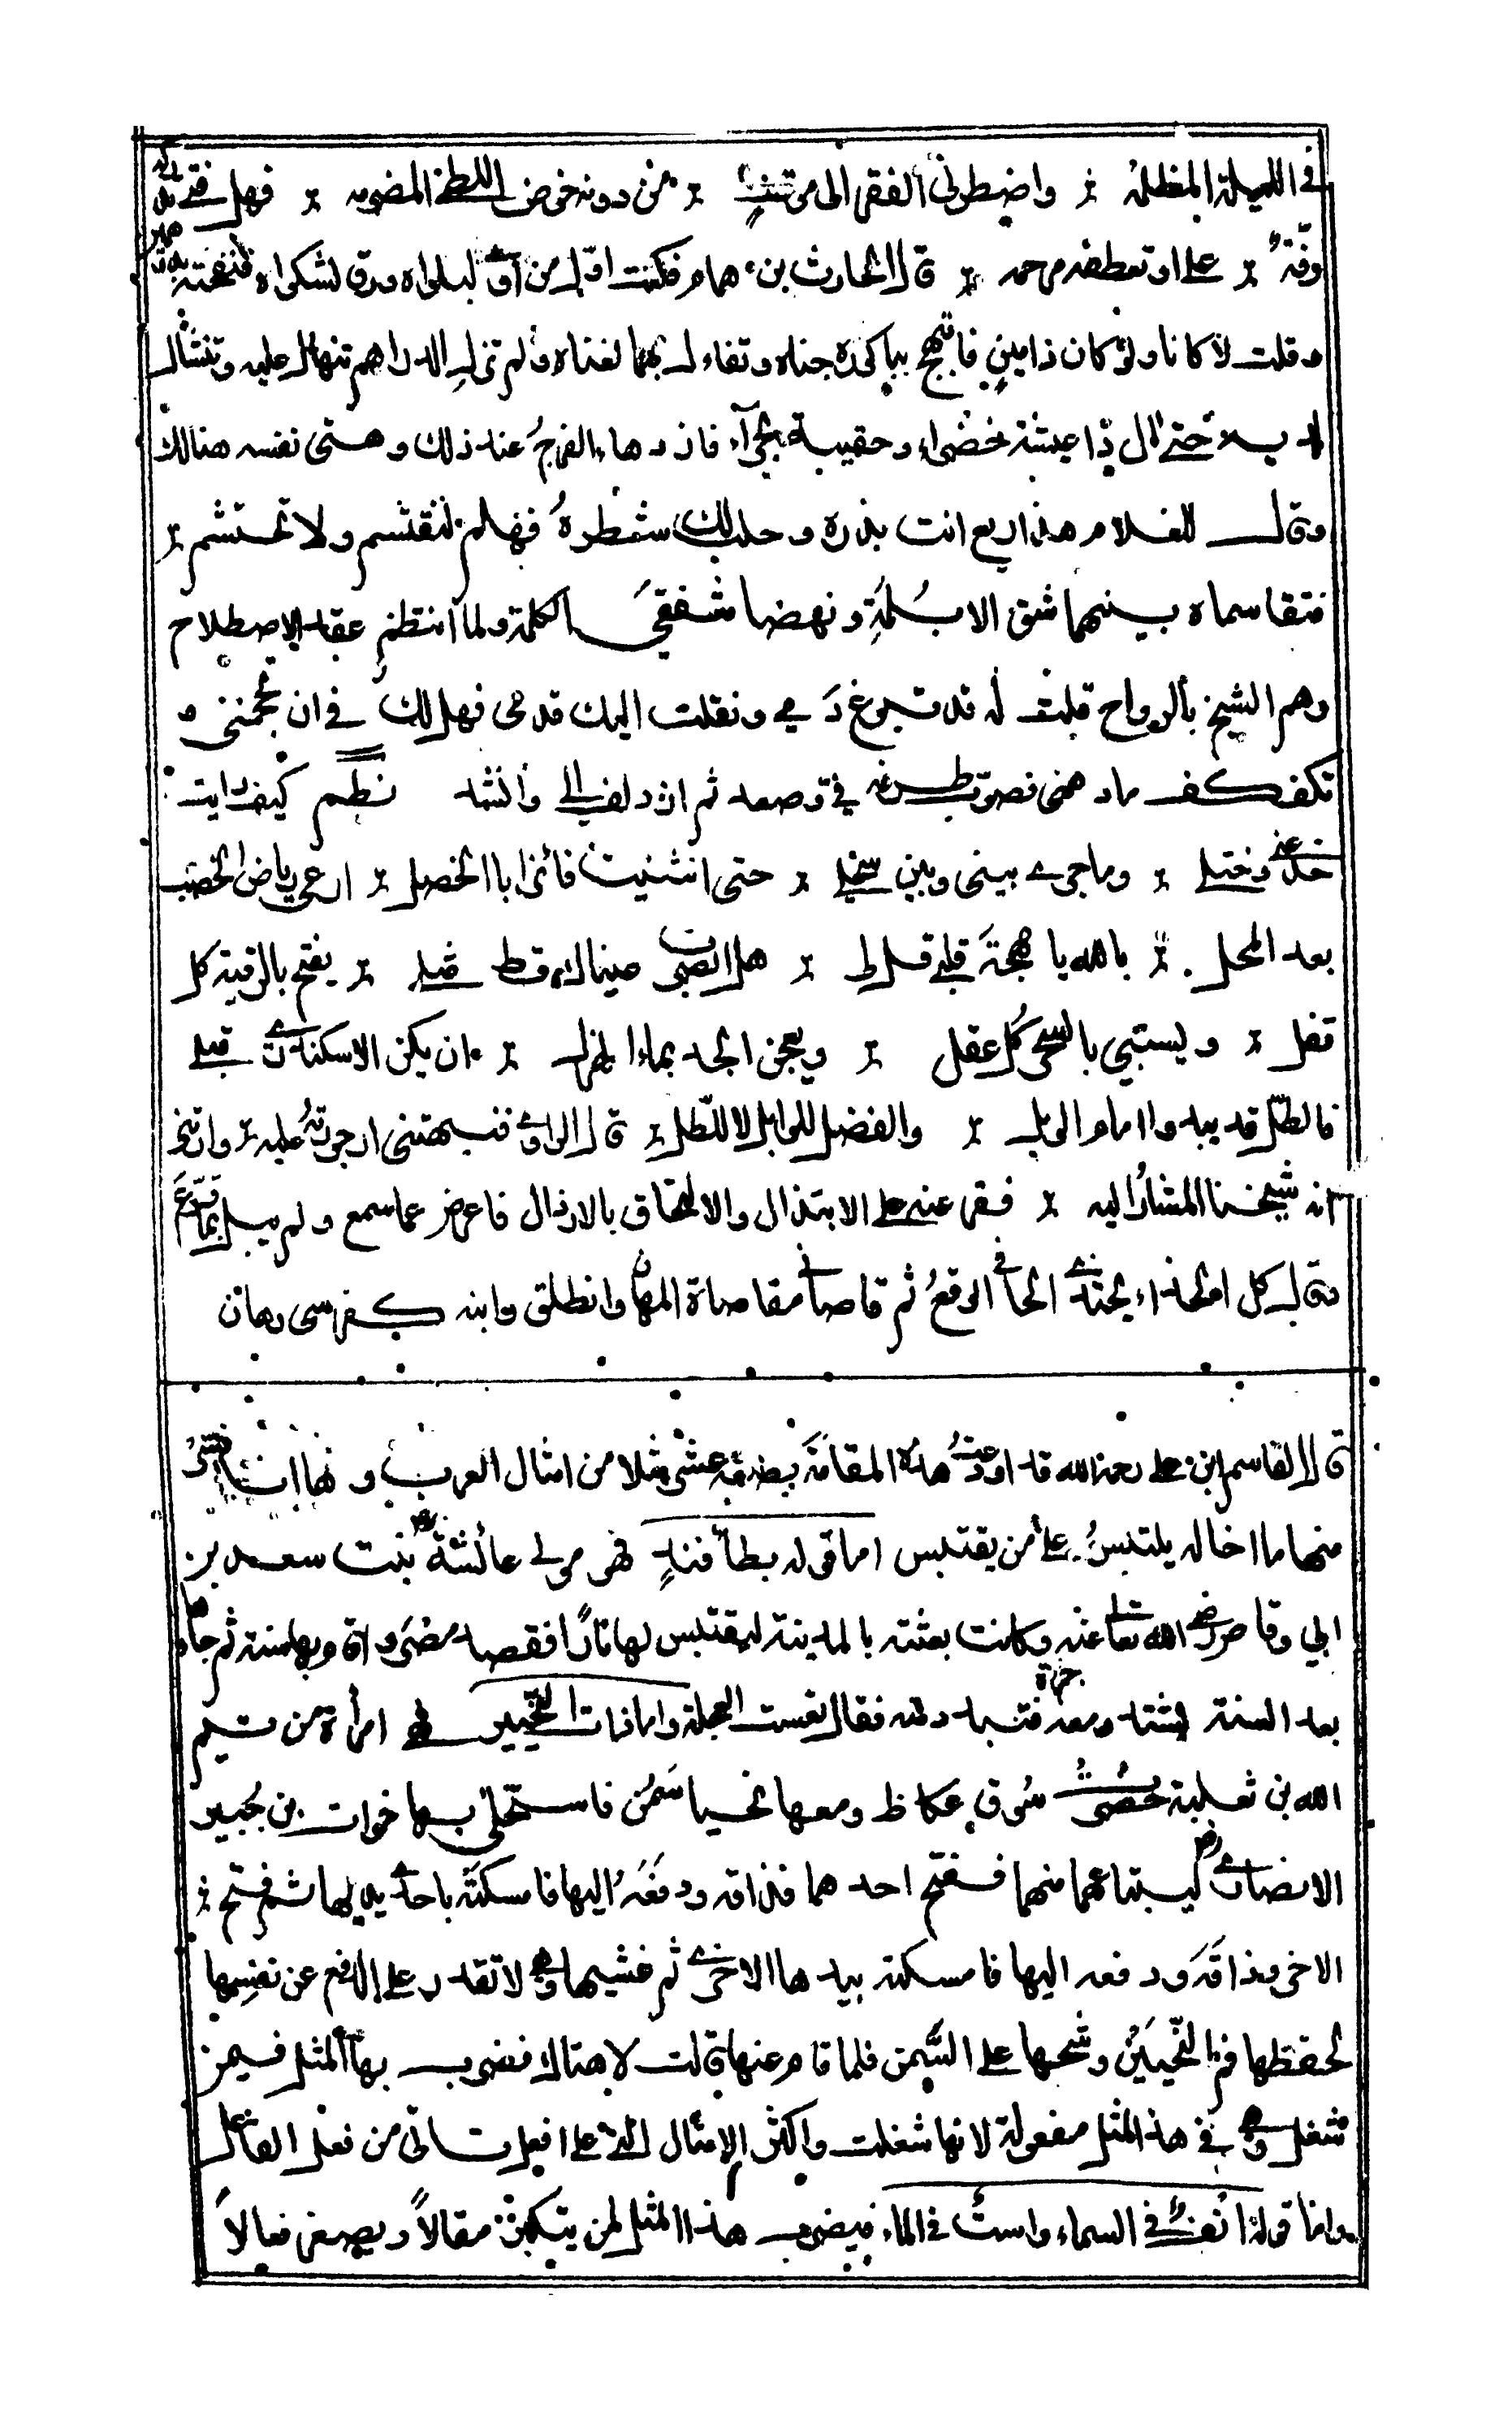 في الليلة المظلمة ؞ واضطرني الفقر الى موقف ؞ من دونه خوض اللظى المضرمه ؞ فهل فتى تدركه
رقّة ؞ علي او تعطفه مرحمه ؞ قال الحارث بن همام فكنت اول من اوى لبلواه ورق لشكواه فنفحته بدرهمين
وقلت لا كانا ولو كان ذا مين فابتهج بباكورة جناه وتفاءل بهما لغناه ولم تزل الدراهم تنهال عليه وتنثال
لديه حتى آل ذا عيشة خضراء وحقيبة بجراء فازدهاه الفرح عند ذلك وهنى نفسه هنالك
وقال للغلام هذا ريع انت بذره وحلب لك شطره فهلم لنقتسم ولا تحتشم ؞
فتقاسماه بينهما شق الابلمة ونهضا متفقي الكلمة ولما انتظم عقد الاصطلاح
وهم الشيخ بالرواح قلت له قد تبوغ دمي ونقلت اليك قدمي فهل لك في ان تحجمني و
تكفكف ما دهمني فصوّب طرفه في وصعد ثم ازدلف الي وانشد نظم كيف رايت
خدعتي وختلي ؞ وما جرى بيني وبين سخلي ؞ حتى انثنيت فائزا بالخصل ؞ ارعى رياض الخصب
بعد المحل ؞ بالله يا مهجة قلبي قل لي ؞ هل ابصرت عيناك قط مثلي ؞ يفتح بالرقية كل
قفل ؞ ويستبي بالسحر كل عقل ؞ ويعجن الجد بماء الهزل ؞ ان يكن الاسكندري قبلي
فالطل قد يبدو امام الوبل ؞ والفضل للوابل لا للطل ؞ قال الراوي فنبهتني ارجوزته عليه ؞ وارتني
انه شيخنا المشار اليه ؞ فقرعته على الابتذال والالتحاق بالارذال فاعرض عما سمع ولم يبل بما قرع
وقال كل الحذاء يحتذي الحافي الوقع ثم قاصاني مقاصاة المهان وانطلق وابنه كفرسي رهان
قال القاسم ابن علي رحمه الله قد اودعت هذه المقامة بضعة عشر مثلا من امثال العرب وها انا افسر
منها ما اخاله يلتبس على من يقتبس اما قوله بطأ فند فهو مولى عائشة بنت سعد بن
ابي وقاص رضي الله تعالى عنه وكانت بعثته بالمدينة ليقتبس لها نارًا فقصد مصر واقام بها سنة ثم جاءها
بعد السنة يشتد ومعه جمرة فتبدد منه فقال تعست العجلة واما ذات النحيين فهي امرأة من تيم
الله بن ثعلبة حضرت سوق عكاظ ومعها نحيا سمن فاستخلى بها خوات بن جبير
الانصاري ليبتاعهما منها ففتح احدهما فذاقه ودفعه اليها فامسكته باحدى يديها ثم فتح ؞
الاخر وذاقه ودفعه اليها فامسكته بيدها الاخرى ثم غشيها وهي لا تقدر على الدفع عن نفسها
لحفظها فم النحيين وشحها على السمن فلما قام عنها قالت لا هناك فضرب بها المثل فيمن
شغل وهي في هذا المثل مفعولة لانها شغلت واكثر الامثال التي على افعل تاتي من فعل الفاعل
واما قوله انف في السماء واست في الماء فيضرب هذا المثل لمن يتكبر مقالاً ويصغر فعالاً